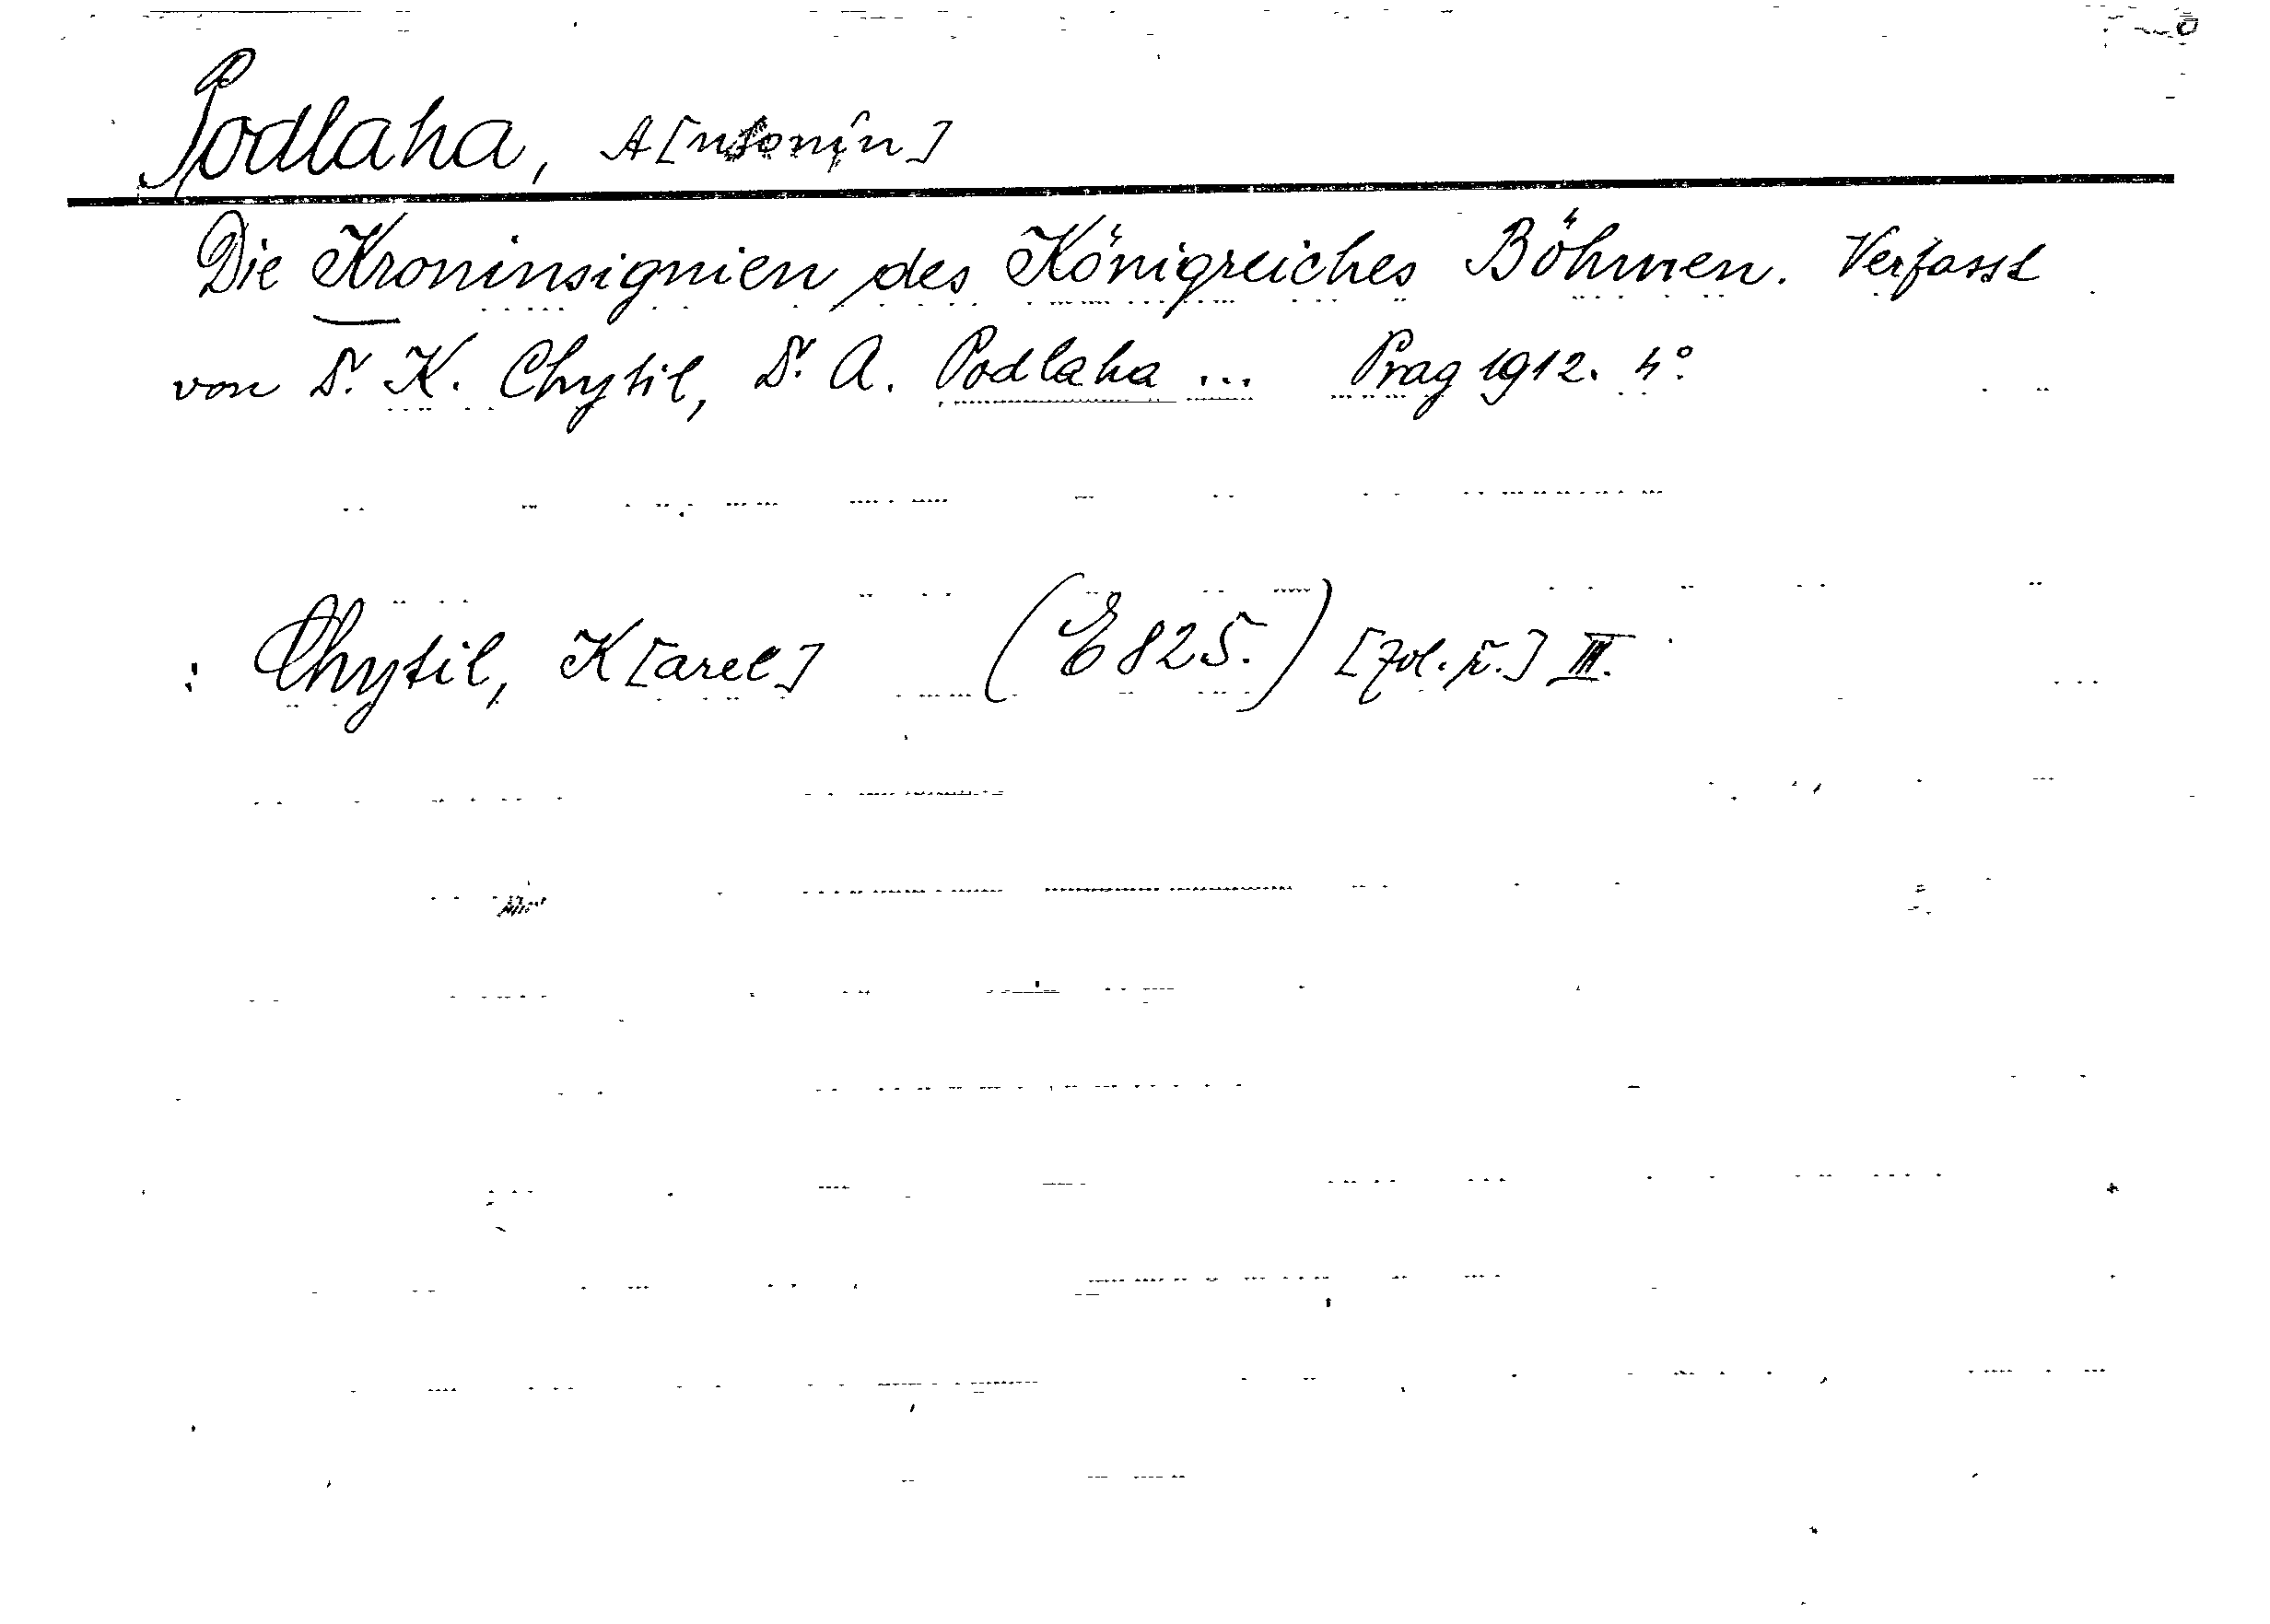 Podlaha, A[ntonín]
Die Kroninsignien des Königreiches Böhmen. Verfasst
von Dr. K. Chytil, Dr. A. Podlaha ... Prag 1912. 4°.
: Chytil, K[arel] (E 825.) [zvl. ř.] III.